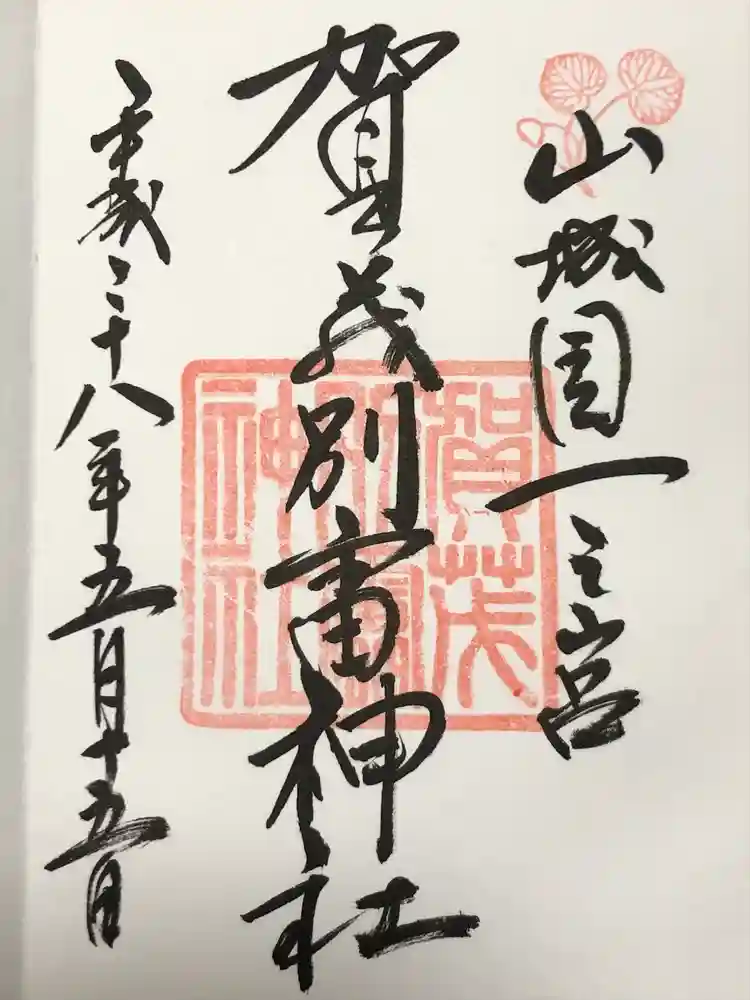 山城國一之宮
賀茂別雷神社
平成二十八年五月十五日
賀茂別雷神社